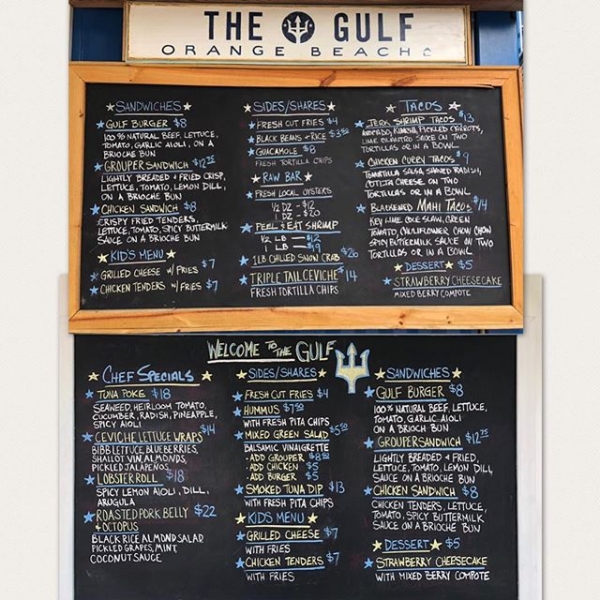 THE GULF
ORANGE BEACH
SANDWICHES
GULF BURGER $8
100% NATURAL BEEF, LETTUCE,
TOMATO, GARLIC AIOLI, ON A
BRIOCHE BUN
GROUPER SANDWICH $12.25
LIGHTLY BREADED & FRIED CRISP,
LETTUCE, TOMATO, LEMON DILL,
ON A BRIOCHE BUN
CHICKEN SANDWICH $8
CRISPY FRIED TENDERS,
LETTUCE, TOMATO, SPICY BUTTERMILK
SAUCE ON A BRIOCHE BUN
KID'S MENU
GRILLED CHEESE W/ FRIES $7
CHICKEN TENDERS W/ FRIES $7
SIDES/SHARES
FRESH CUT FRIES $4
BLACK BEANS & RICE $3.50
GUACAMOLE $8
FRESH TORTILLA CHIPS
RAW BAR
FRESH LOCAL OYSTERS
1/2 DZ - $12
1 DZ - $20
PEEL & EAT SHRIMP
1/2 LB - $12
1 LB - $19
1LB CHILLED SNOW CRAB $26
TRIPLE TAIL CEVICHE $14
FRESH TORTILLA CHIPS
TACOS
JERK SHRIMP TACOS $13
AVOCADO, PICKLED CARROTS,
LIME CILANTRO SAUCE ON TWO
TORTILLAS OR IN A BOWL
CHICKEN CURRY TACOS $9
SALSA, SHAVED RADISH,
COTIJA CHEESE ON TWO
TORTILLAS OR IN A BOWL
BLACKENED MAHI TACOS $14
KEY LIME COLE SLAW, GREEN
TOMATO, CAULIFLOWER CHOW CHOW
SPICY BUTTERMILK SAUCE ON TWO
TORTILLAS OR IN A BOWL
DESSERT $5
STRAWBERRY CHEESECAKE
MIXED BERRY COMPOTE
WELCOME TO THE GULF
CHEF SPECIALS
TUNA POKE $18
SEAWEED, HEIRLOOM TOMATO,
CUCUMBER, RADISH, PINEAPPLE,
SPICY AIOLI
CEVICHE LETTUCE WRAPS $14
BIBB LETTUCE, BLUEBERRIES,
SHALLOT VIN, ALMONDS,
PICKLED JALAPEÑOS
LOBSTER ROLL $18
SPICY LEMON AIOLI, DILL,
ARUGULA
ROASTED PORK BELLY $22
& OCTOPUS
BLACK RICE ALMOND SALAD
PICKLED GRAPES, MINT
COCONUT SAUCE
SIDES/SHARES
FRESH CUT FRIES $4
HUMMUS $7.50
WITH FRESH PITA CHIPS
MIXED GREEN SALAD $5.50
BALSAMIC VINAIGRETTE
- ADD GROUPER $8.50
- ADD CHICKEN $5
- ADD BURGER $5
SMOKED TUNA DIP $13
WITH FRESH PITA CHIPS
KIDS MENU
GRILLED CHEESE $7
WITH FRIES
CHICKEN TENDERS $7
WITH FRIES
SANDWICHES
GULF BURGER $8
100% NATURAL BEEF, LETTUCE,
TOMATO, GARLIC AIOLI
ON A BRIOCH BUN
GROUPER SANDWICH $12.25
LIGHTLY BREADED & FRIED,
LETTUCE, TOMATO, LEMON DILL,
SAUCE ON A BRIOCHE BUN
CHICKEN SANDWICH $8
CHICKEN TENDERS, LETTUCE,
TOMATO, SPICY BUTTERMILK
SAUCE ON A BRIOCHE BUN
DESSERT $5
STRAWBERRY CHEESECAKE
WITH MIXED BERRY COMPOTE